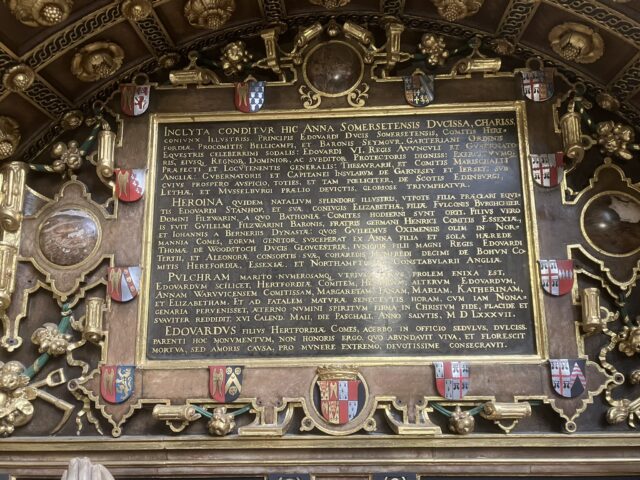 INCLYTA CONDITVR HIC ANNA SOMERSETENSIS DVCISSA, CHARISS.
CONIVNX ILLVSTRISS. PRINCIPIS EDOVARDI DVCIS SOMERSETENSIS, COMITIS HERT-
FORDIÆ, PROCOMITIS BELLICAMPI, ET BARONIS SEYMVR, GARTERIANI ORDINIS
EQVESTRIS CELEBERRIMI SODALIS: EDOVARDI VI. REGIS AVVNCVLI ET GVBERNATO
RIS, EIVSQ. REGNOR, DOMINIOR, AC SVBDITOR PROTECTORIS DIGNISS: EXERCITVVMQ.
PRÆFECTI ET LOCVMTENENTIS GENERALIS: THESAVRARII, ET COMITIS MARISCALLI
ANGLIÆ, GVBERNATORIS ET CAPITANEI INSVLARVM DE GARNESEY, ET IERSEY, SVB
CVIVS PROSPERO AVSPICIO, TOTIES, ET TAM FŒLICITER, DE SCOTIS, EDINBVRGI,
LETHÆ, ET MVSSELBVRGI PRÆLIO DEVICTIS, GLORIOSE TRIVMPHATVR.
HEROINA QVIDEM NATALIVM SPLENDORE ILLVSTRIS, VTPOTE FILIA PRÆCLARI EQVI-
TIS EDOVARDI STANHOP, ET SVÆ CONIVGIS ELIZABETHÆ, FILIÆ FVLCONIS BVRGHCHIER
DOMINI FITZWARIN, A QVO BATHONIÆ COMITES HODIERNI SVNT ORTI. FILIVS VERO
IS FVIT GVILELMI FITZWARINI BARONIS, FRATRIS GERMANI HENRICI COMITIS ESSEXIÆ,
ET IOHANNIS A BERNERIS DYNASTÆ: QVOS GVILELMVS OXIMENSIS OLIM IN NOR-
MANNIA COMES, EORVM GENITOR, SVSCEPERAT EX ANNA FILIA ET SOLA HÆREDE
THOMÆ DE WOODSTOCH DVCIS GLOCESTRIÆ, IVNIORIS FILII MAGNI REGIS EDOVARDI
TERTII, ET ALEONORÆ CONSORTIS SVÆ, COHÆREDIS HVMFREDI DECIMI DE BOHVN CO-
MITIS HEREFORDIÆ, ESSEXIÆ, ET NORTHAMPTONIÆ, CONSTABVLARII ANGLIÆ.
PVLCHRAM MARITO NVMEROSAMQ. VTRIVSQ. SEXVS PROLEM ENIXA EST,
EDOVARDVM SCILICET, HERTFORDIÆ COMITEM, HENRICVM, ALTERVM EDOVARDVM,
ANNAM WARVVICENSEM COMITISSAM, MARGARETAM, IOANAM, MARIAM, KATHERINAM,
ET ELIZABETHAM. ET AD FATALEM MATVRÆ SENECTVTIS HORAM, CVM IAM NONA-
GENARIA PERVENISSET, ÆTERNO NVMINI SPIRITVM FIRMA IN CHRISTVM FIDE, PLACIDE ET
SVAVITER REDDIDIT XVI CALEND. MAII, DIE PASCHALI, ANNO SALVTIS, M D LXXXVII.
EDOVARDVS FILIVS HERTFORDIÆ COMES, ACERBO IN OFFICIO SEDVLVS, DVLCISS.
PARENTI HOC MONVMENTVM, NON HONORIS ERGO, QVO ABVNDAVIT VIVA, ET FLORESCIT
MORTVA, SED AMORIS CAVSA, PRO MVNERE EXTREMO, DEVOTISSIME CONSECRAVIT.